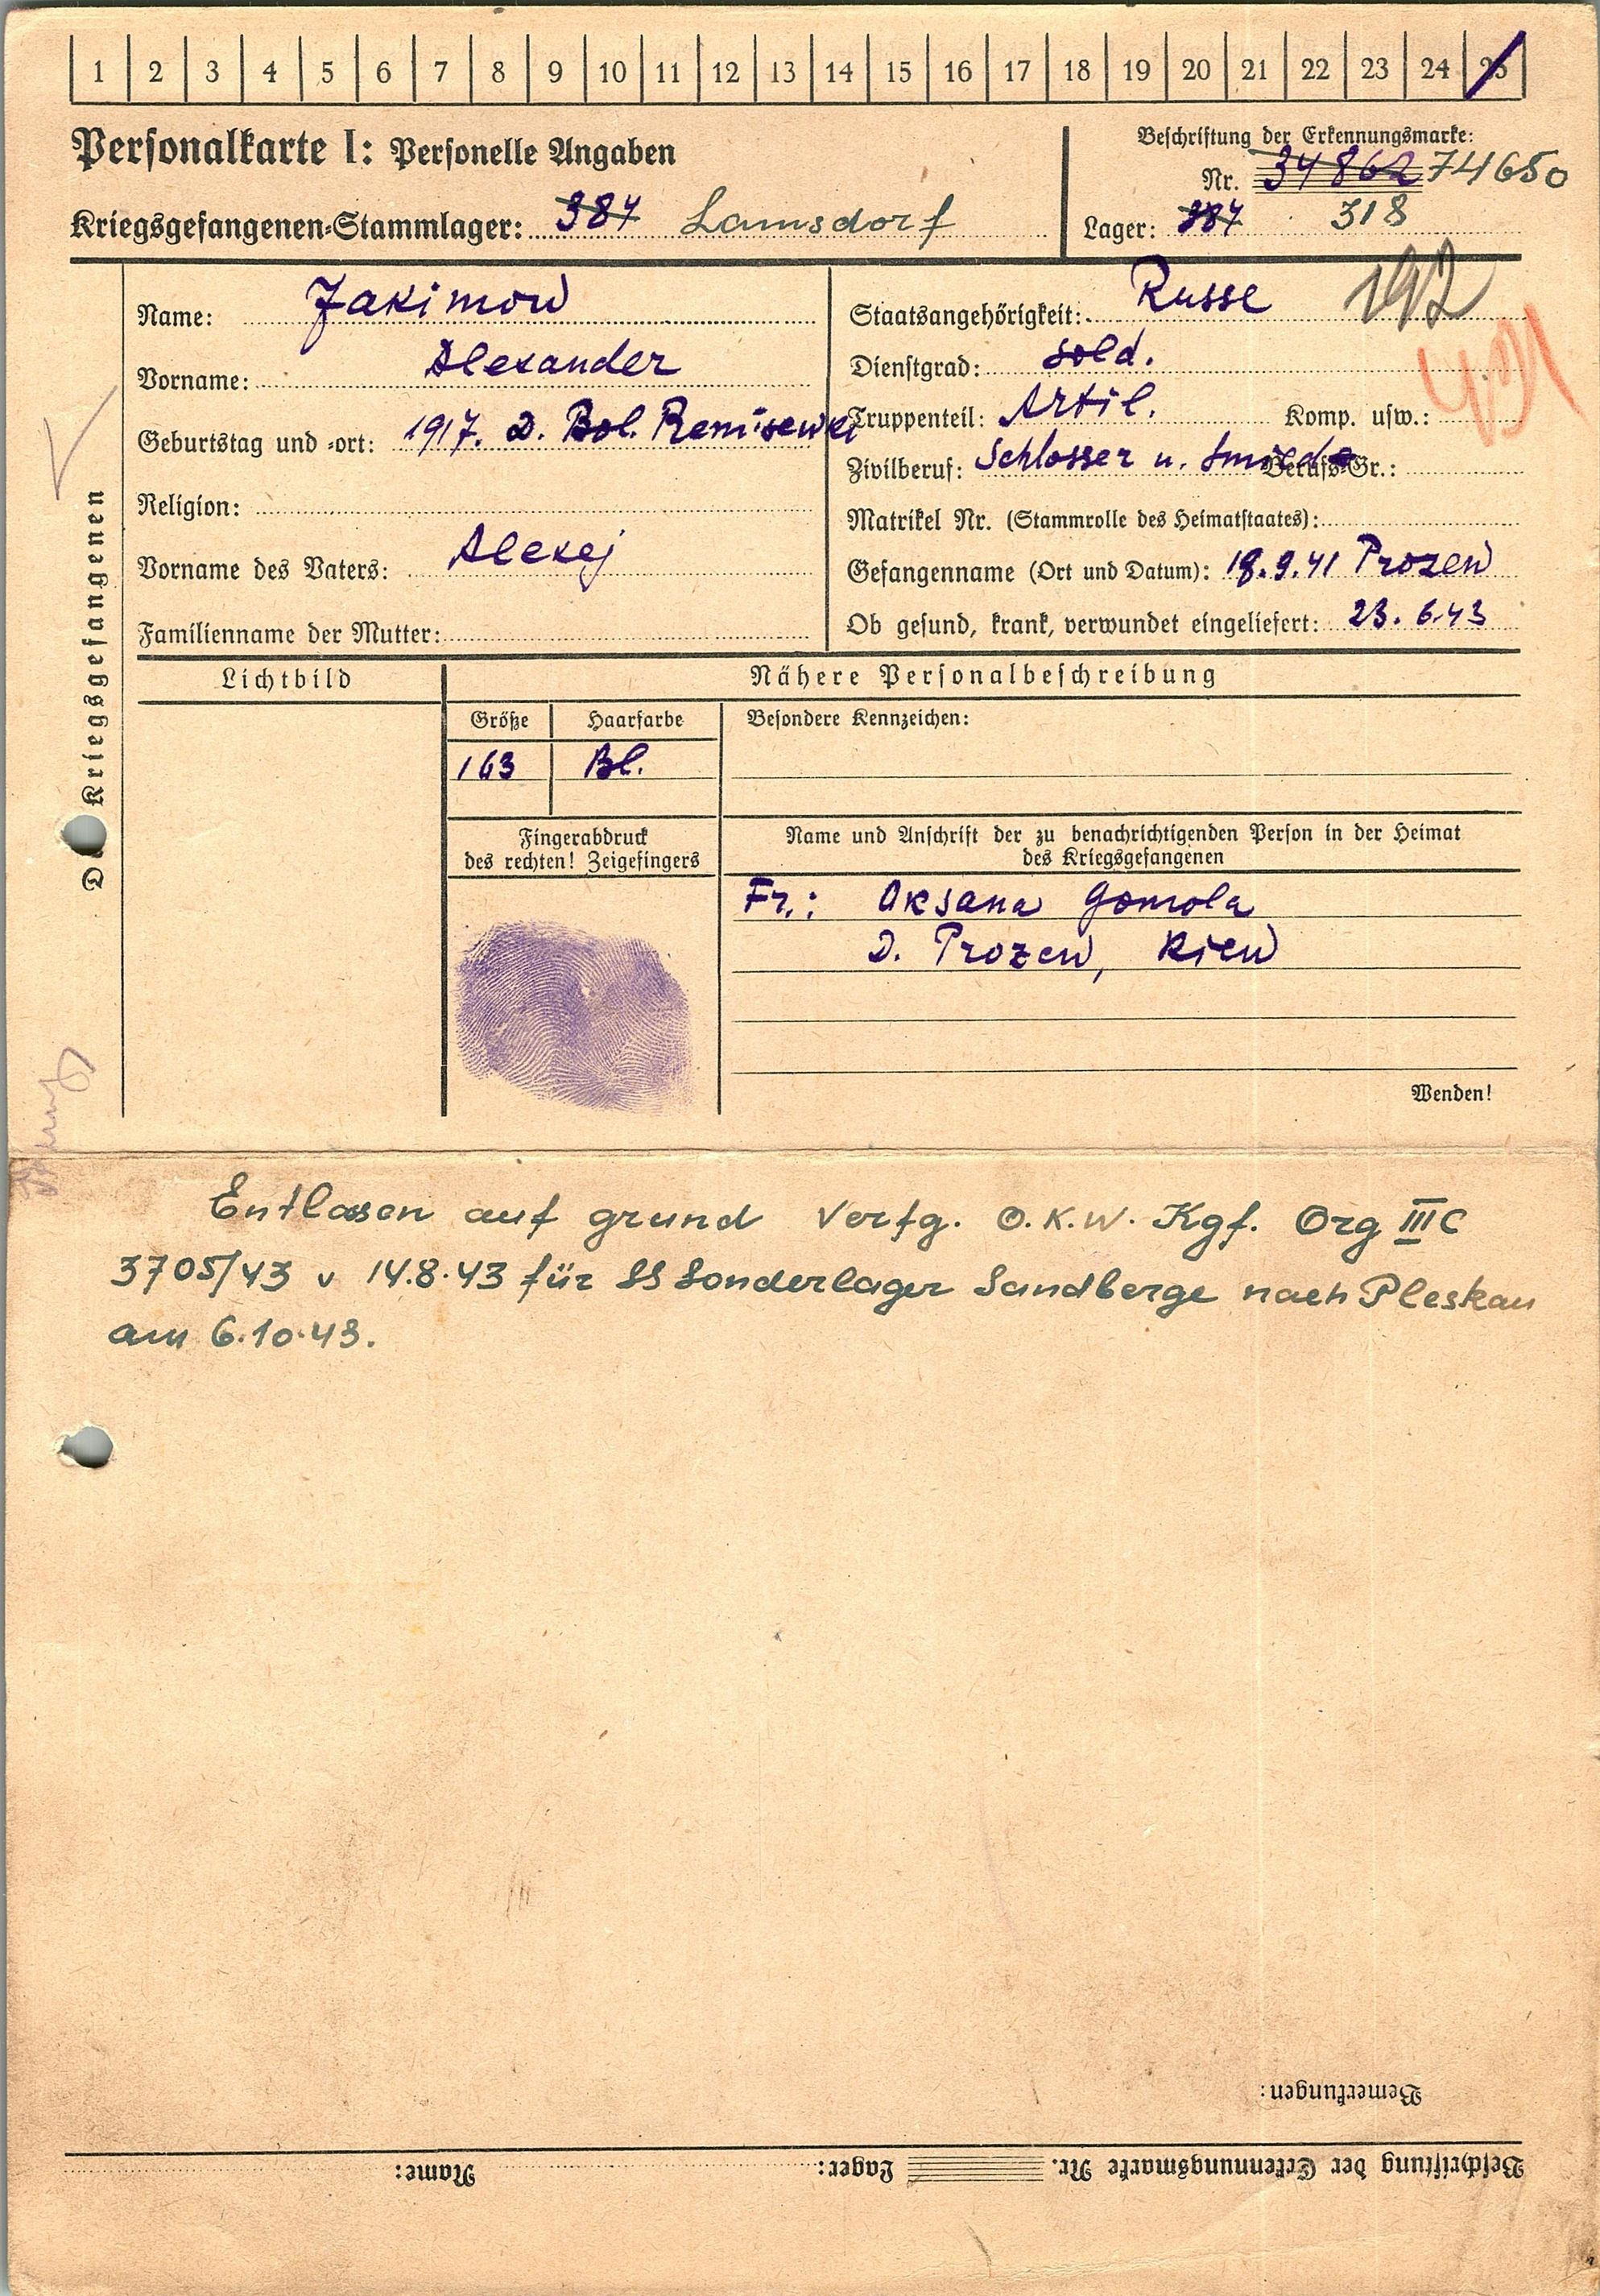 1 2 3 4 5 6 7 8 9 10 11 12 13 14 15 16 17 18 19 20 21 22 23 24 25
Personalkarte I: Personelle Angaben
Beschriftung der Erkennungsmarke:
Nr. 34862 74650
Kriegsgefangenen-Stammlager: 384 Lamsdorf
Lager: 384 318
Name: Jakimow
Vorname: Alexander
Geburtstag und -ort: 1917. D. Bol. Remisewka
Religion:
Vorname des Vaters: Alexej
Familienname der Mutter:
Staatsangehörigkeit: Russe 192
Dienstgrad: Sold.
Truppenteil: Artil. Komp. usw.:
Zivilberuf: Schlosser u. Smiede Berufs-Gr.:
Matrikel Nr. (Stammrolle des Heimatstaates):
Gefangenname (Ort und Datum): 18.9.41 Prozew
Ob gesund, krank, verwundet eingeliefert: 23.6.43
Des Kriegsgefangenen
Lichtbild
Nähere Personalbeschreibung
Größe Haarfarbe Besondere Kennzeichen:
163 Bl.
Fingerabdruck
des rechten! Zeigefingers
Name und Anschrift der zu benachrichtigenden Person in der Heimat
des Kriegsgefangenen
Fr.: Oksana Gomola
D. Prozew, Kiew
Wenden!
Entlasen auf grund Verfg. O.K.W. Kgf. Org III C
3705/43 v 14.8.43 für SS Sonderlager Sandberge nach Pleskau
am 6.10.43.
Bemerkungen:
Beschriftung der Erkennungsmarke Nr. Lager: Name: